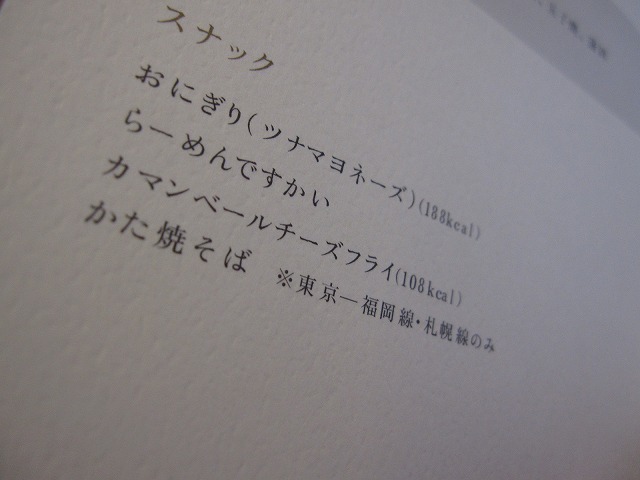 スナック
おにぎり(ツナマヨネーズ)(188kcal)
らーめんですかい
カマンベールチーズフライ(108kcal)
かた焼そば ※東京ー福岡線・札幌線のみ